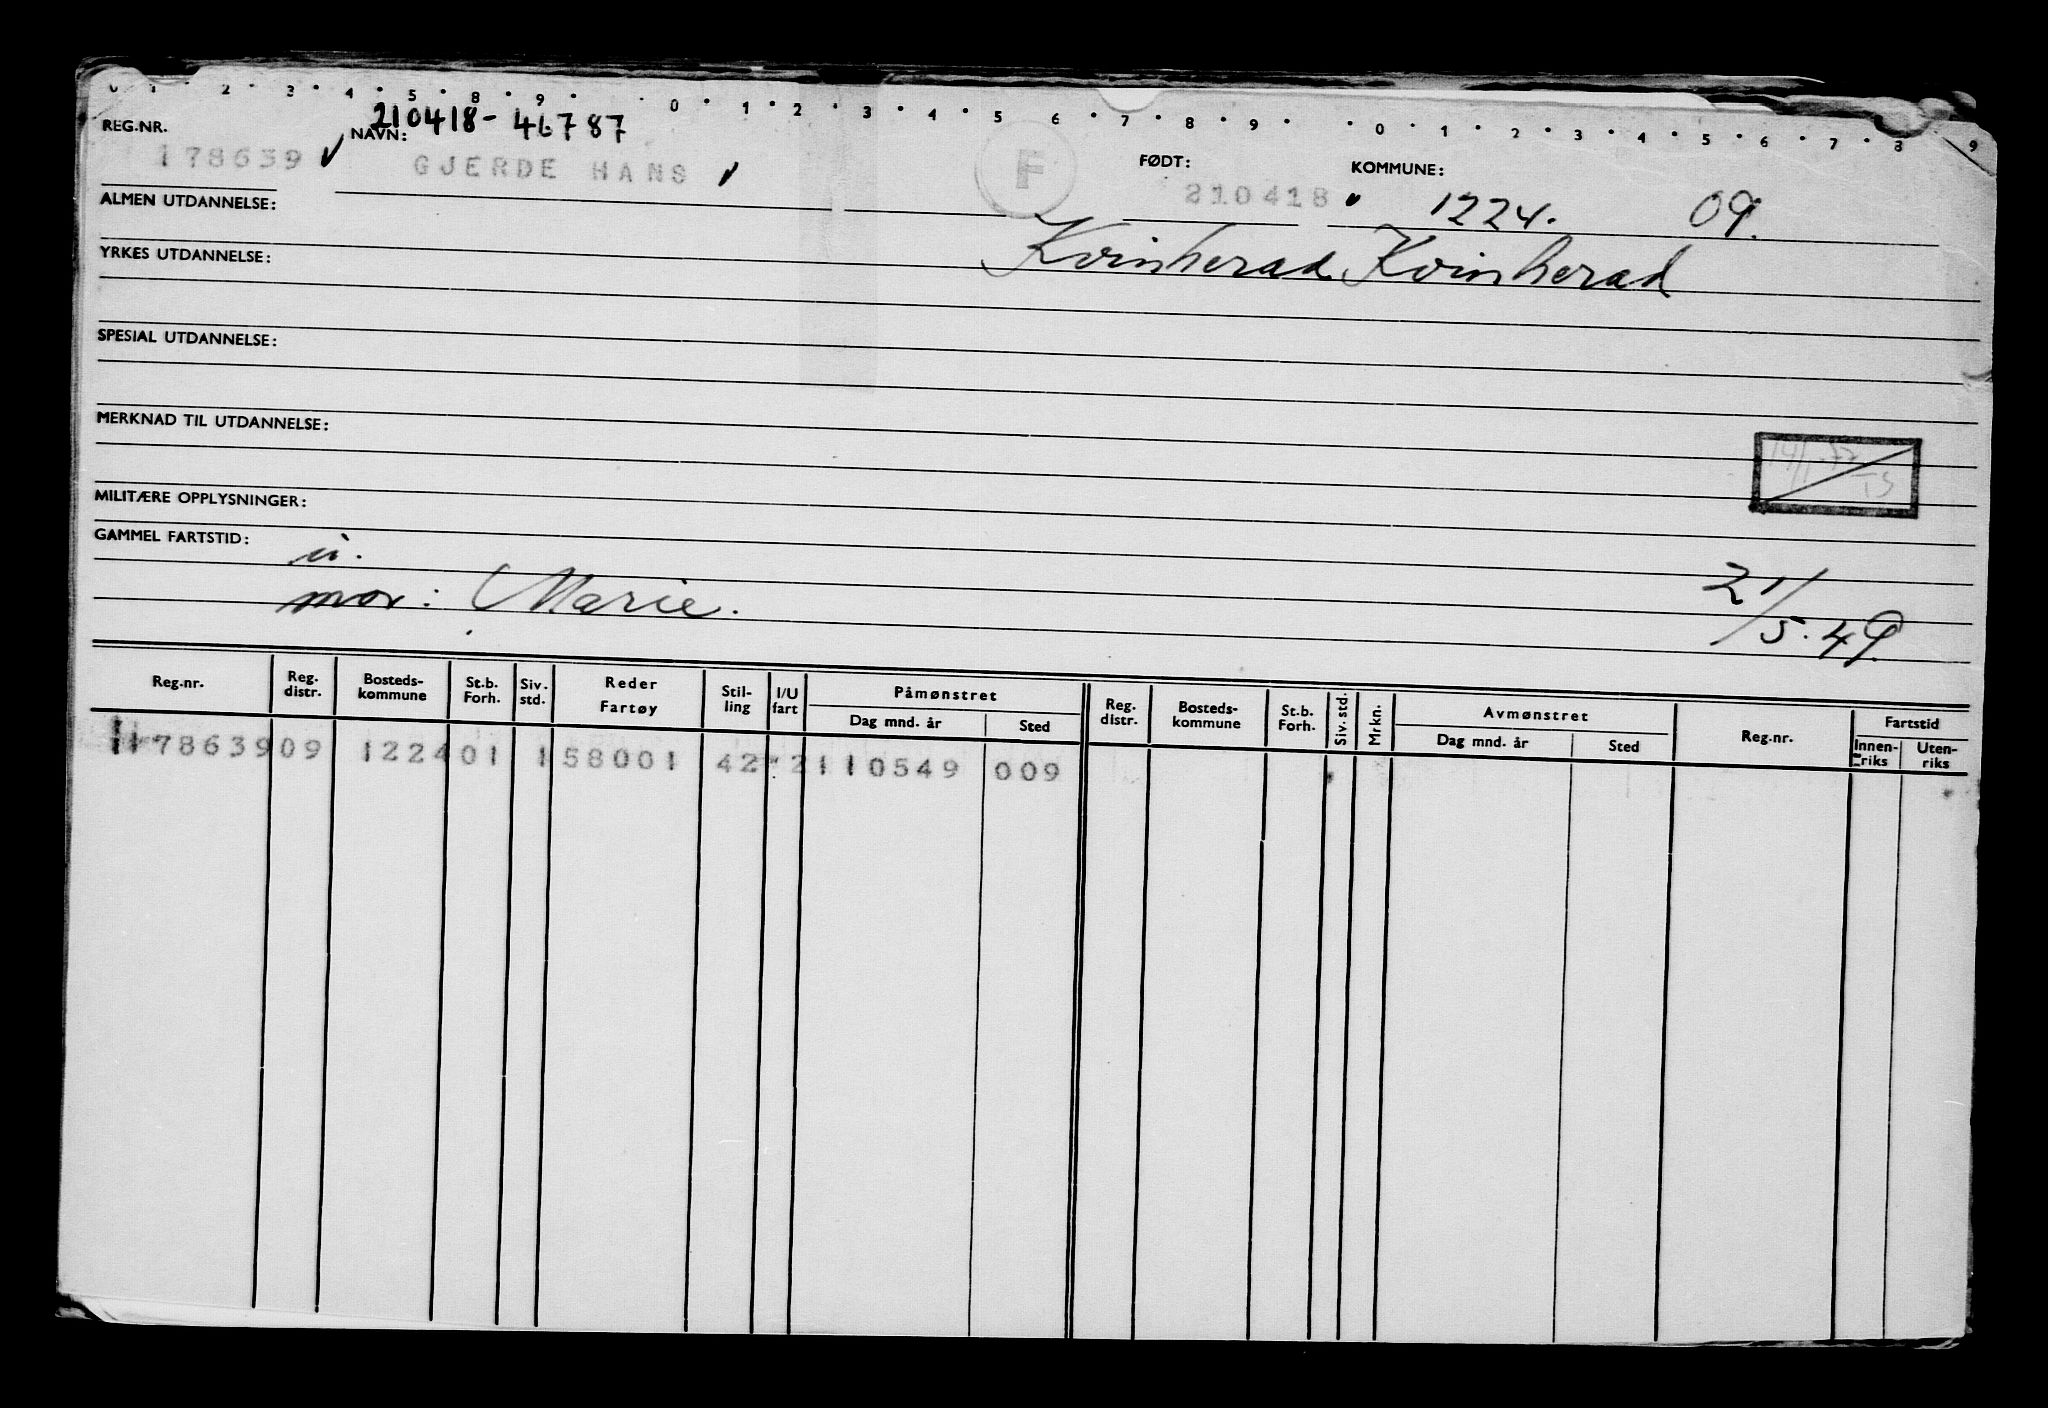 0 1 · 2 · 3 · 4 · 5 · 8 · 9 · 0 · 1 · 2 · 3 · 4 · 5 · 6 · 7 · 8 · 9 · · 0 · 1 · 2 · 3 · 4 · 5 · 6 · 7 · 8 9
210418-46787
REG.NR. NAVN: FØDT: KOMMUNE:
178639 ✓ GJERDE HANS ✓ F 210418 1224. 09.
ALMEN UTDANNELSE:
Kvinherad Kvinherad
YRKES UTDANNELSE:
SPESIAL UTDANNELSE:
MERKNAD TIL UTDANNELSE:
14/1-77 TS
MILITÆRE OPPLYSNINGER:
GAMMEL FARTSTID:
u.
mor: Marie. 21/5.49
Reg.nr. Reg. distr. Bosteds-kommune St.b. Forh. Siv. std. Reder Fartøy Stil-ling I/U fart Påmønstret Dag mnd. år Sted Reg. distr. Bosteds-kommune St.b. Forh. Siv. std. Mrkn. Avmønstret Dag mnd. år Sted Reg.nr. Fartstid Innen-riks Uten-riks
178639 09 1224 01 1 58001 42 2 110549 009